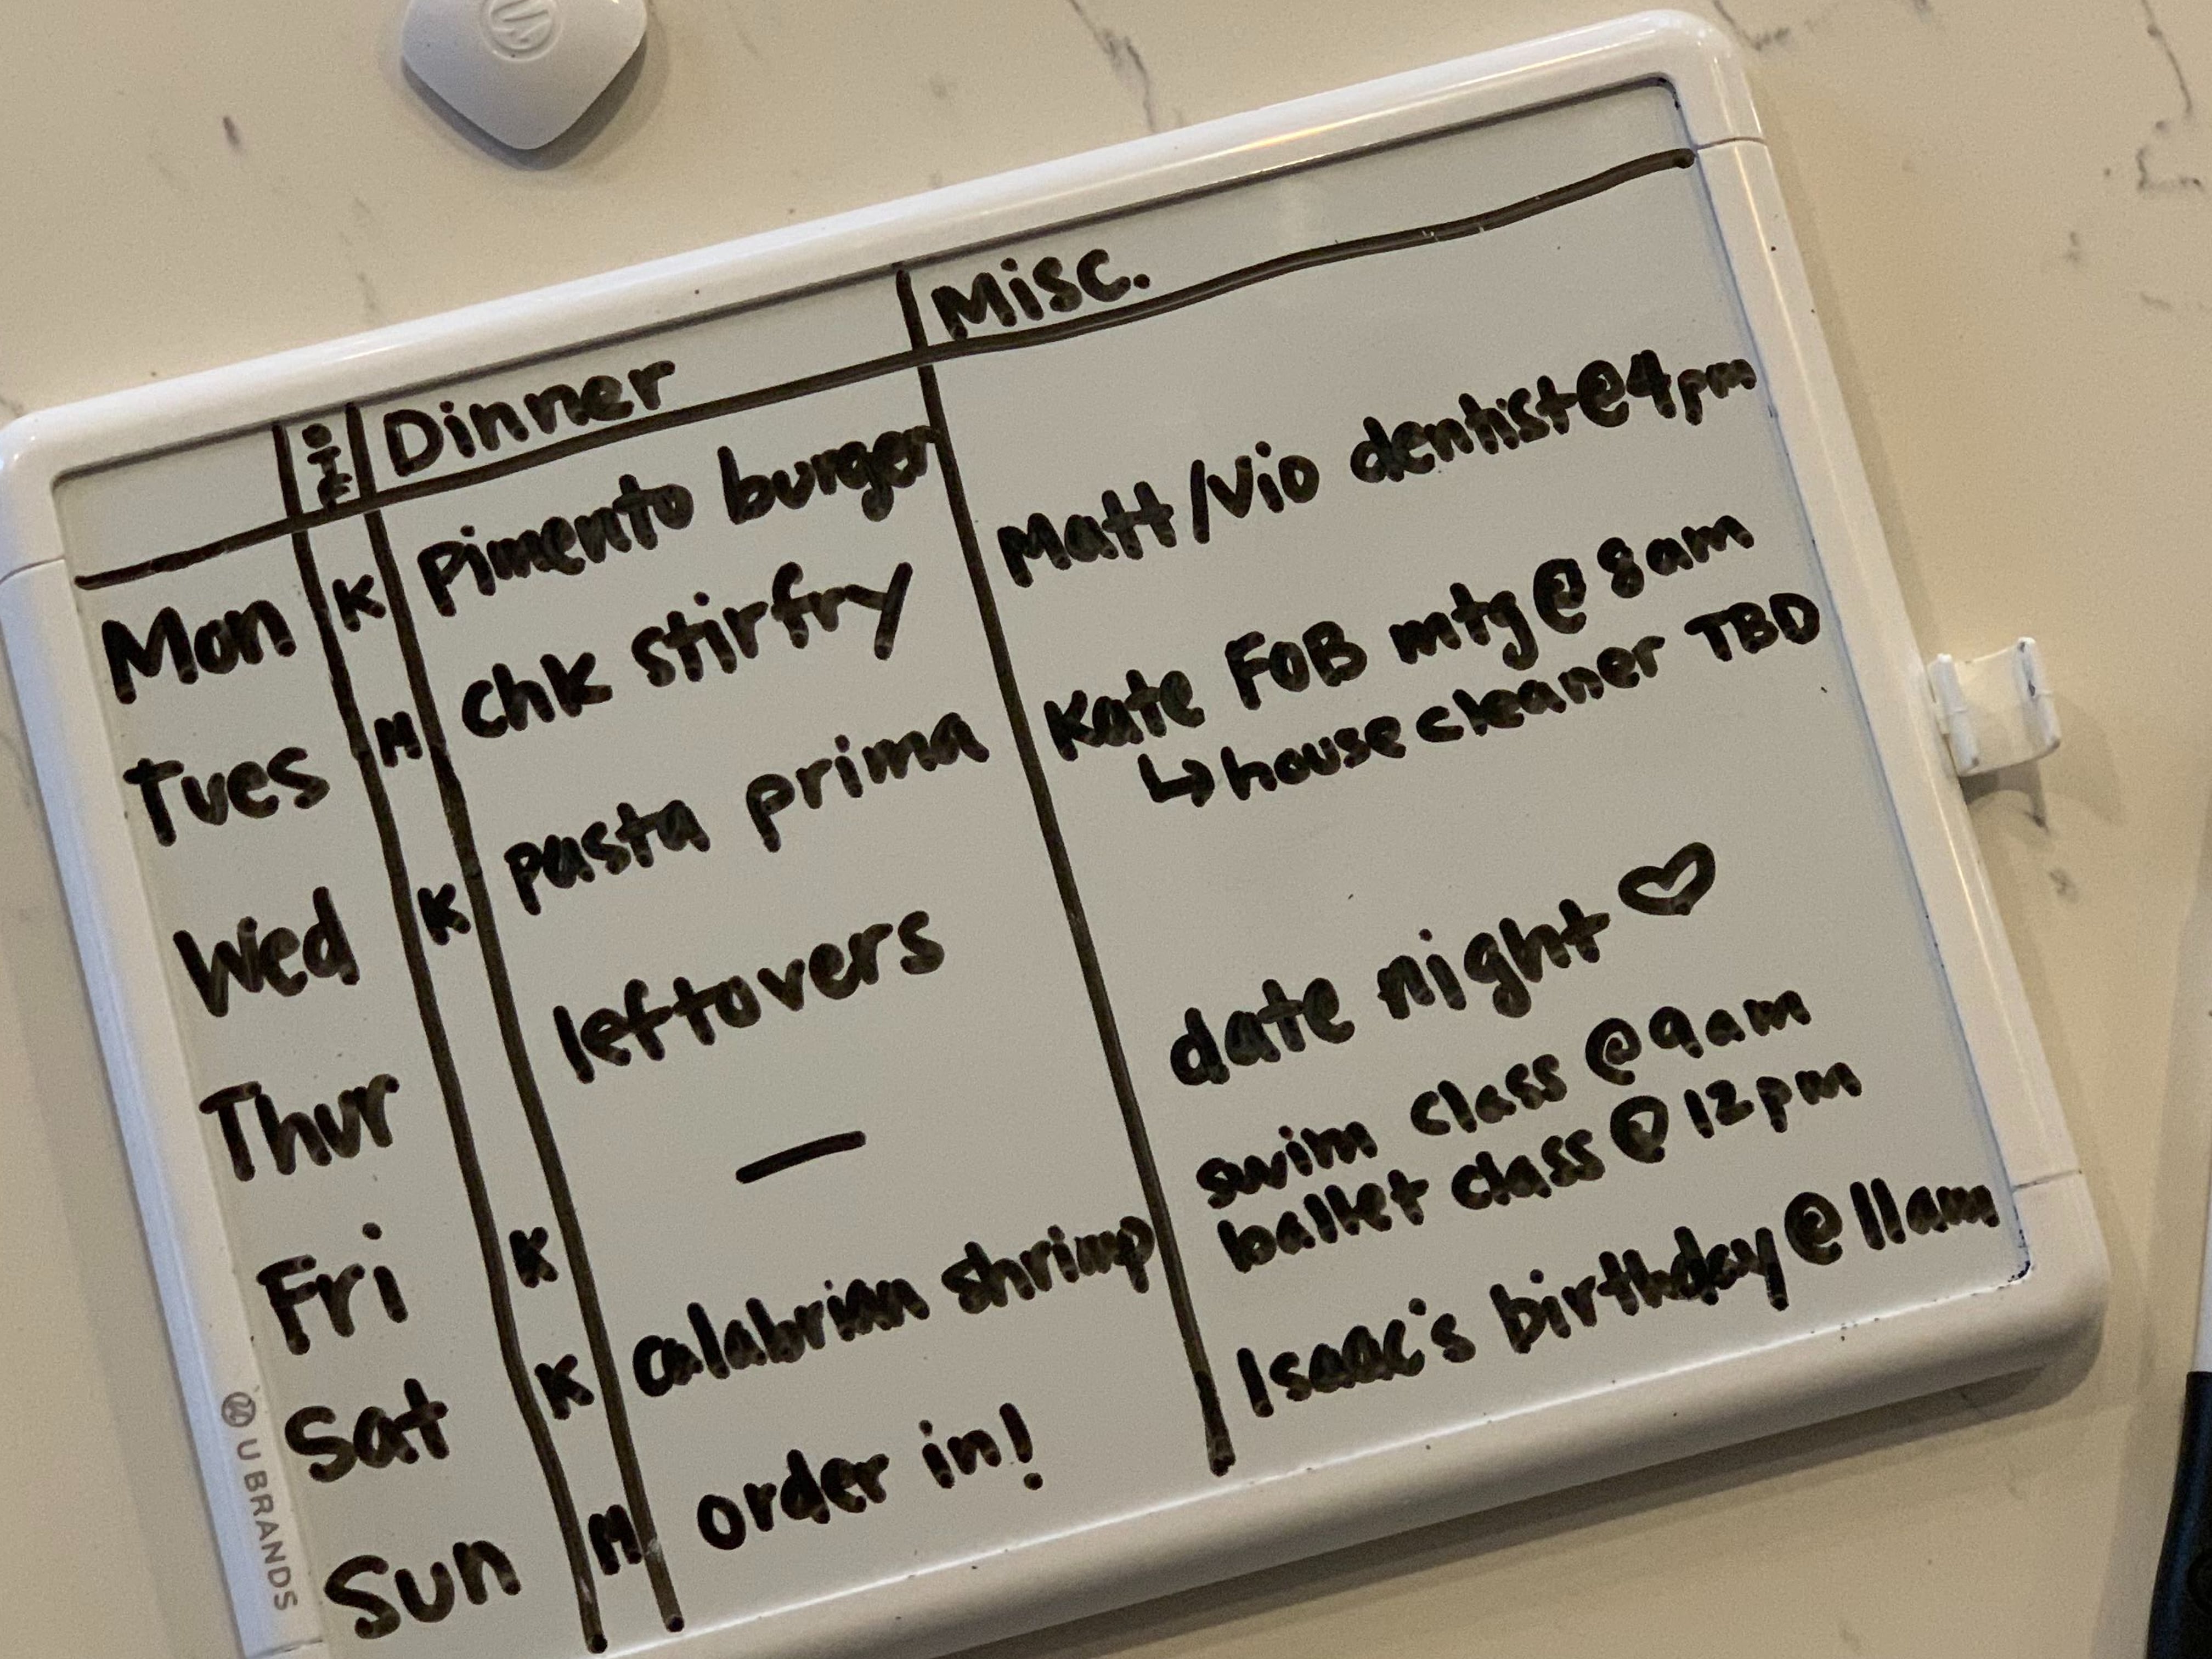 OTF Dinner Misc.
Mon K Pimento burger
Tues M chk stirfry Matt/Vio dentist@4pm
Wed K pasta prima Kate FOB mtg@8am
↳house cleaner TBD
Thur leftovers
Fri K — date night ♡
Sat K calabrian shrimp swim class @9am
ballet class@12pm
Sun M order in! Isaac's birthday@11am
U BRANDS